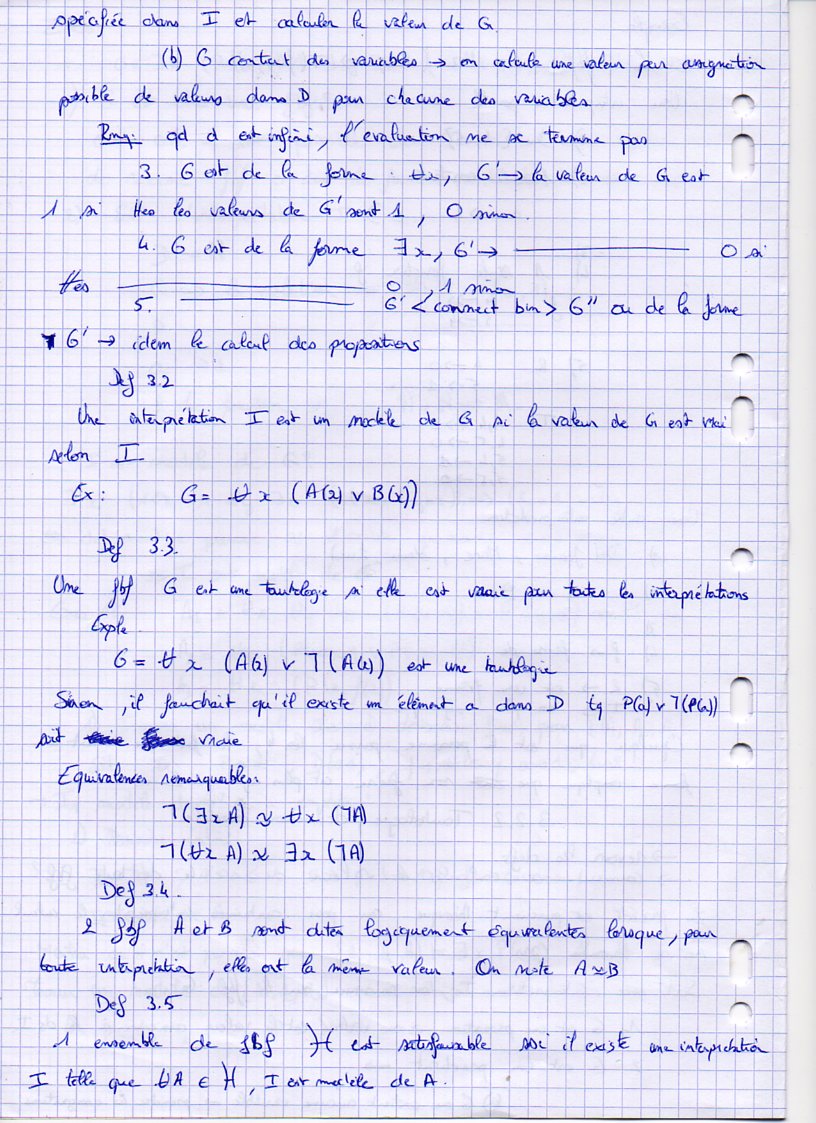 spécifiée dans I et calculer la valeur de G.
(b) G contient des variables → on calcule une valeur par assignation
possible de valeurs dans D pour chacune des variables
Rmq: qd d est infini, l'évaluation ne se termine pas
3. G est de la forme ∀x, G' → la valeur de G est
1 si ttes les valeurs de G' sont 1, 0 sinon.
4. G est de la forme ∃x, G' → ———— 0 si
ttes ———— 0, 1 sinon
5. ———— G' <connect bin> G'' ou de la forme
¬G' → idem le calcul des propositions
Def 3.2
Une interprétation I est un modèle de G si la valeur de G est vrai
selon I
Ex: G = ∀x (A(x) ∨ B(x))
Def 3.3.
Une fbf G est une tautologie si elle est vraie pour toutes les interprétations
Exple
G = ∀x (A(x) ∨ ¬(A(x)) est une tautologie
Sinon, il faudrait qu'il existe un élément a dans D tq P(a) ∨ ¬(P(a))
soit vraie
Equivalences remarquables:
¬(∃x A) ≈ ∀x (¬A)
¬(∀x A) ≈ ∃x (¬A)
Def 3.4.
2 fbf A et B sont dites logiquement équivalentes lorsque, pour
toute interprétation, elles ont la même valeur. On note A ≃ B
Def 3.5
1 ensemble de fbf H est satisfaisable ssi il existe une interprétation
I telle que ∀A ∈ H, I est modèle de A.